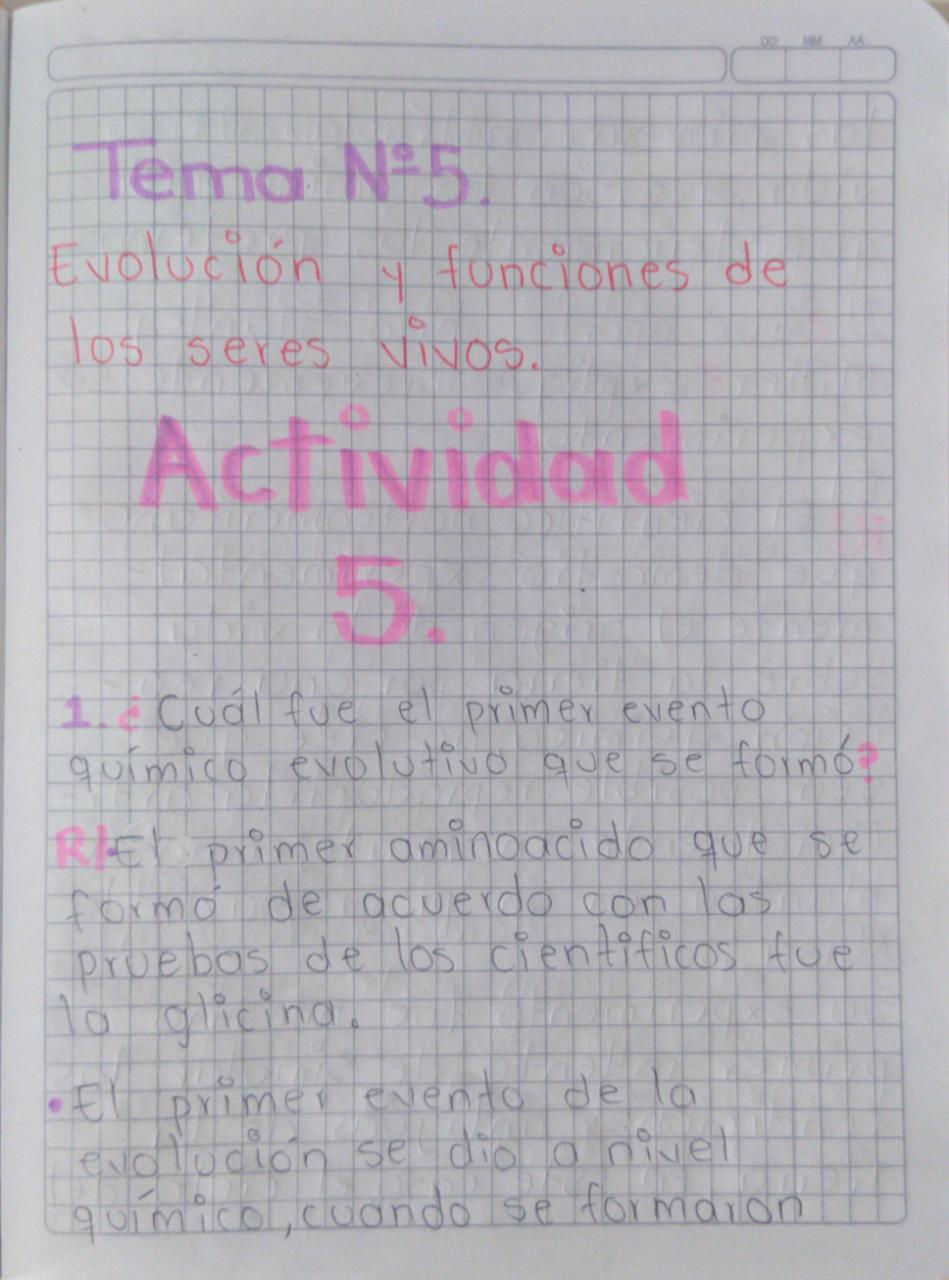 DD MM AA
Tema Nº5.
Evolución y funciones de
los seres vivos.
Actividad
5.
1. ¿Cuál fue el primer evento
químico evolutivo que se formó?
R/. El primer aminoacido que se
formó de acuerdo con las
pruebas de los cientificos fue
la glicina.
• El primer evento de la
evolución se dio a nivel
químico, cuando se formaron